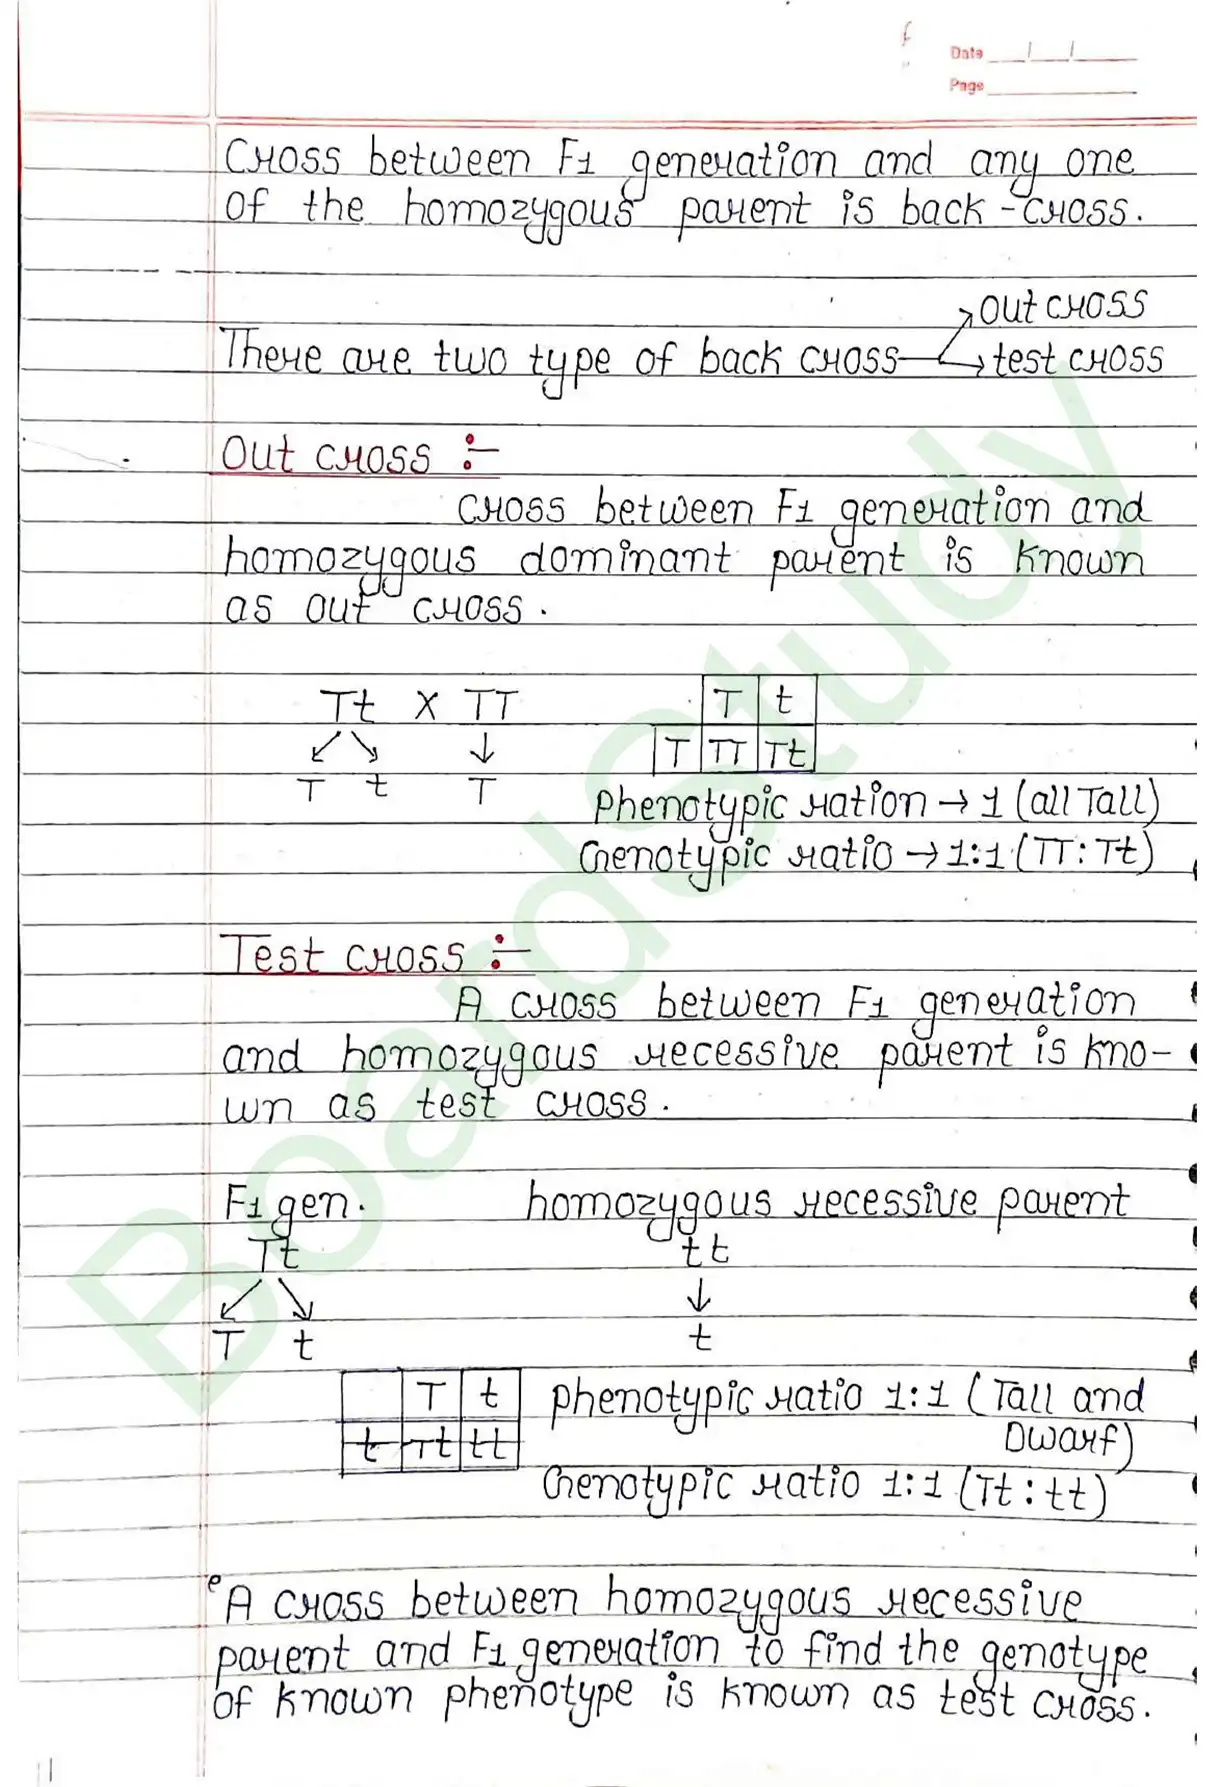 Date
Page
Cross between F1 generation and any one
of the homozygous parent is back-cross.
out cross
There are two type of back cross → test cross
Out cross :-
cross between F1 generation and
homozygous dominant parent is known
as out cross.
Tt X TT
T t T
T t
T TT Tt
Phenotypic ration → 1 (all Tall)
Genotypic ratio → 1:1 (TT:Tt)
Test cross :-
A cross between F1 generation
and homozygous recessive parent is kno-
wn as test cross.
F1 gen. homozygous recessive parent
Tt tt
T t t
T t
t Tt tt
phenotypic ratio 1:1 (Tall and
Dwarf)
Genotypic ratio 1:1 (Tt:tt)
A cross between homozygous recessive
parent and F1 generation to find the genotype
of known phenotype is known as test cross.
BoardStudy